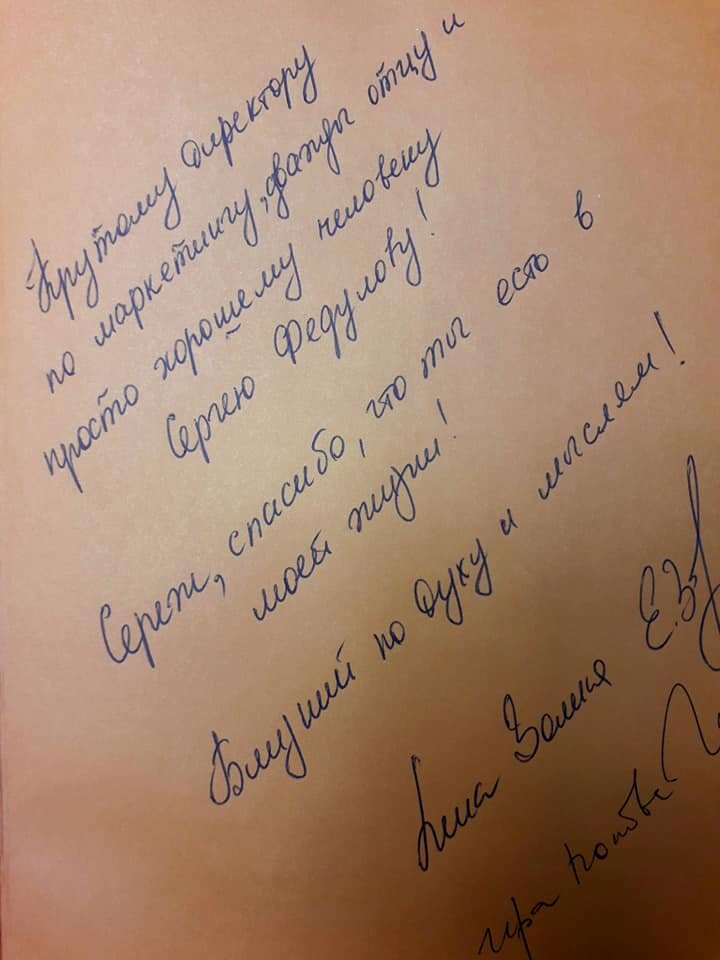 Крутому Директору
по маркетингу, дважды отцу и
просто хорошему человеку
Сергею Федулову!
Сереж, спасибо, что ты есть в
моей жизни!
Близкий по духу и мыслям!
Е.З